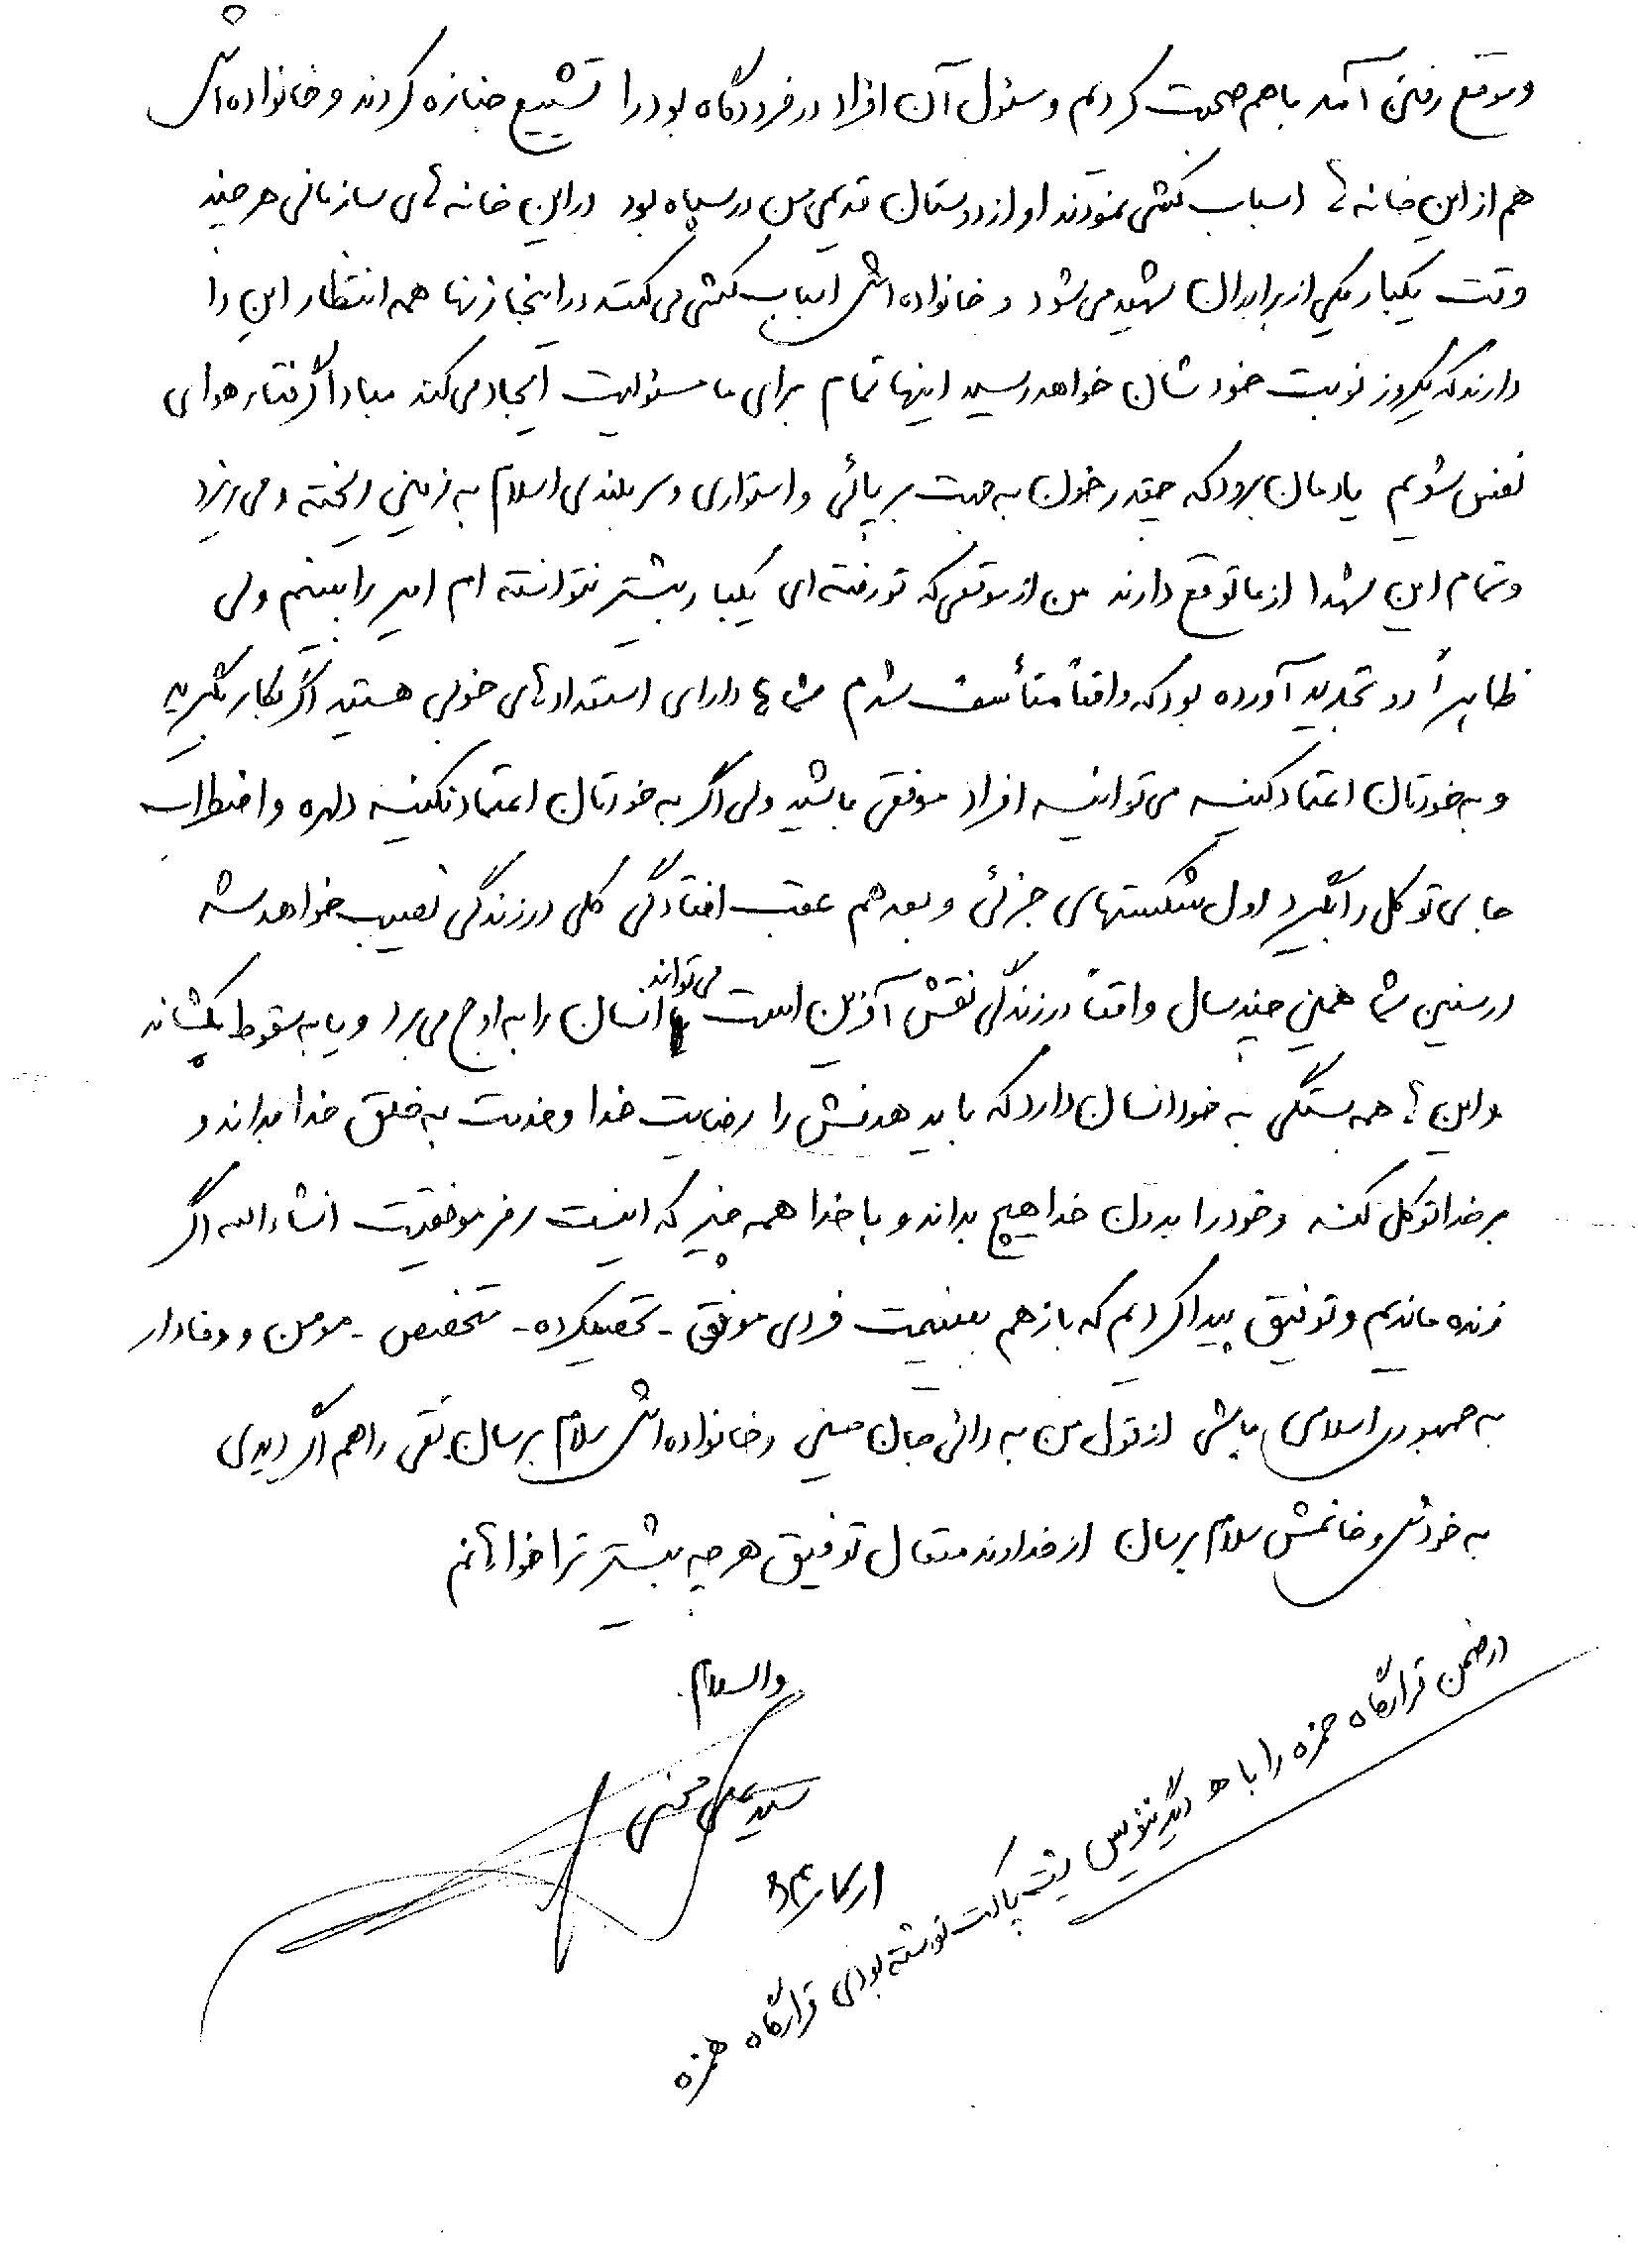 وموقع رفتن آمد باهم صحبت کردیم و مسئول آن افراد در فرودگاه بود را تشییع جنازه کردند و خانواده اش
هم از این خانه ها اسباب کشی نمودند او از دوستان قدیمی من در سپاه بود در این خانه های سازمانی هر چند
وقت یکبار یکی از برادران شهید می شود و خانواده اش اسباب کشی می کند در اینجا زنها همه انتظار این را
دارند که یکروز نوبت خودشان خواهد رسید اینها تمام برای ما مسئولیت ایجاد می کند مبادا گرفتار هوای
نفس شویم یادمان برود که چقدر خون به جهت برپائی و استواری و سربلندی اسلام به زمین ریخته و می ریزد
و تمام این شهدا از ما توقع دارند من از موقعی که تو رفته ای یکبار بیشتر نتوانسته ام امیر را ببینم ولی
ظاهراً دو تجدید آورده بود که واقعاً متأسف شدم شما ها دارای استعدادهای خوبی هستید اگر بکار بگیرید
و به خودتان اعتماد کنید می توانید افراد موفقی باشید ولی اگر به خودتان اعتماد نکنید دلهره و اضطراب
جای توکل را بگیرد اول شکستهای جزئی و بعد هم عقب افتادگی کلی در زندگی نصیب خواهد شد
در سنین شما همین چند سال واقعاً در زندگی نقش آفرین است می تواند انسان را به اوج می برد و یا به سقوط بکشاند
و این ها همه بستگی به خود انسان دارد که باید هدفش را رضایت خدا و خدمت به خلق خدا بداند و
بر خدا توکل کند و خود را بدون خدا هیچ بداند و با خدا همه چیز که اینست رمز موفقیت انشاءالله اگر
زنده ماندیم و توفیق پیدا کردیم که باز هم ببینیمت فردی موفق - تحصیلکرده - متخصص - مومن و وفادار
به جمهوری اسلامی باشی از قول من به دائی جان حسینی و خانواده اش سلام برسان تقی را هم اگر دیدی
به خودش و خانمش سلام برسان از خداوند متعال توفیق هر چه بیشتر ترا خواهانم
والسلام
سید علی
در ضمن قرارگاه حمزه را با ه دیگر ننویس پشت پاکت نوشته بودی قرارگاه همزه